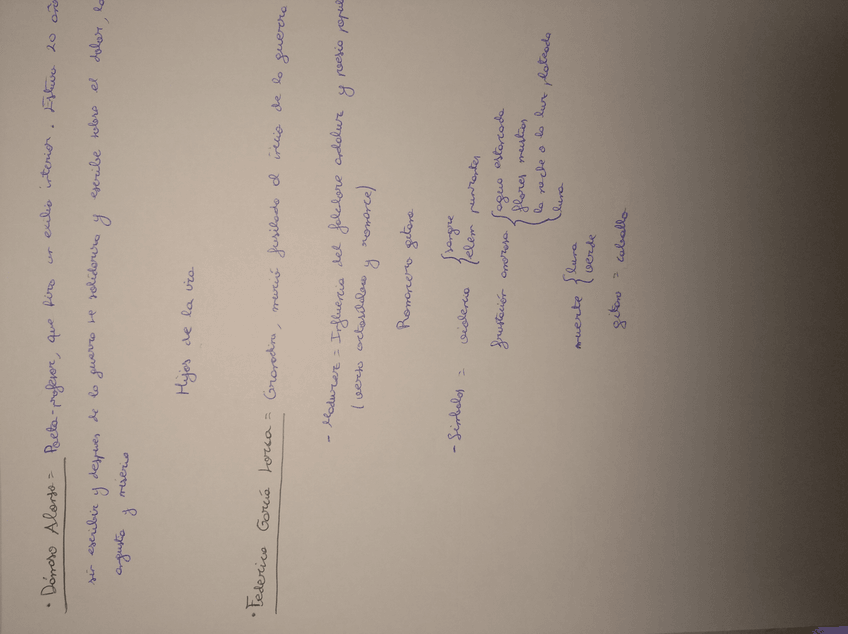 • Dámaso Alonso = Poeta-profesor, que hizo un exilio interior. Estuvo 20 año
sin escribir y despues de la guerra se solidariza y escribe sobre el dolor, la
angustia y miseria
Hijos de la ira
• Federico García Lorca = Granadino, murió fusilado al inicio de la guerra
- Madurez = Influencia del folclore andaluz y poesía popul
(verso octosílabo y romance)
Romancero gitano
- Símbolos = violencia { sangre
elem punzantes
frustación amorosa { agua estancada
flores mustias
la noche o la luz plateada
luna
muerte { luna
verde
gitano = caballo